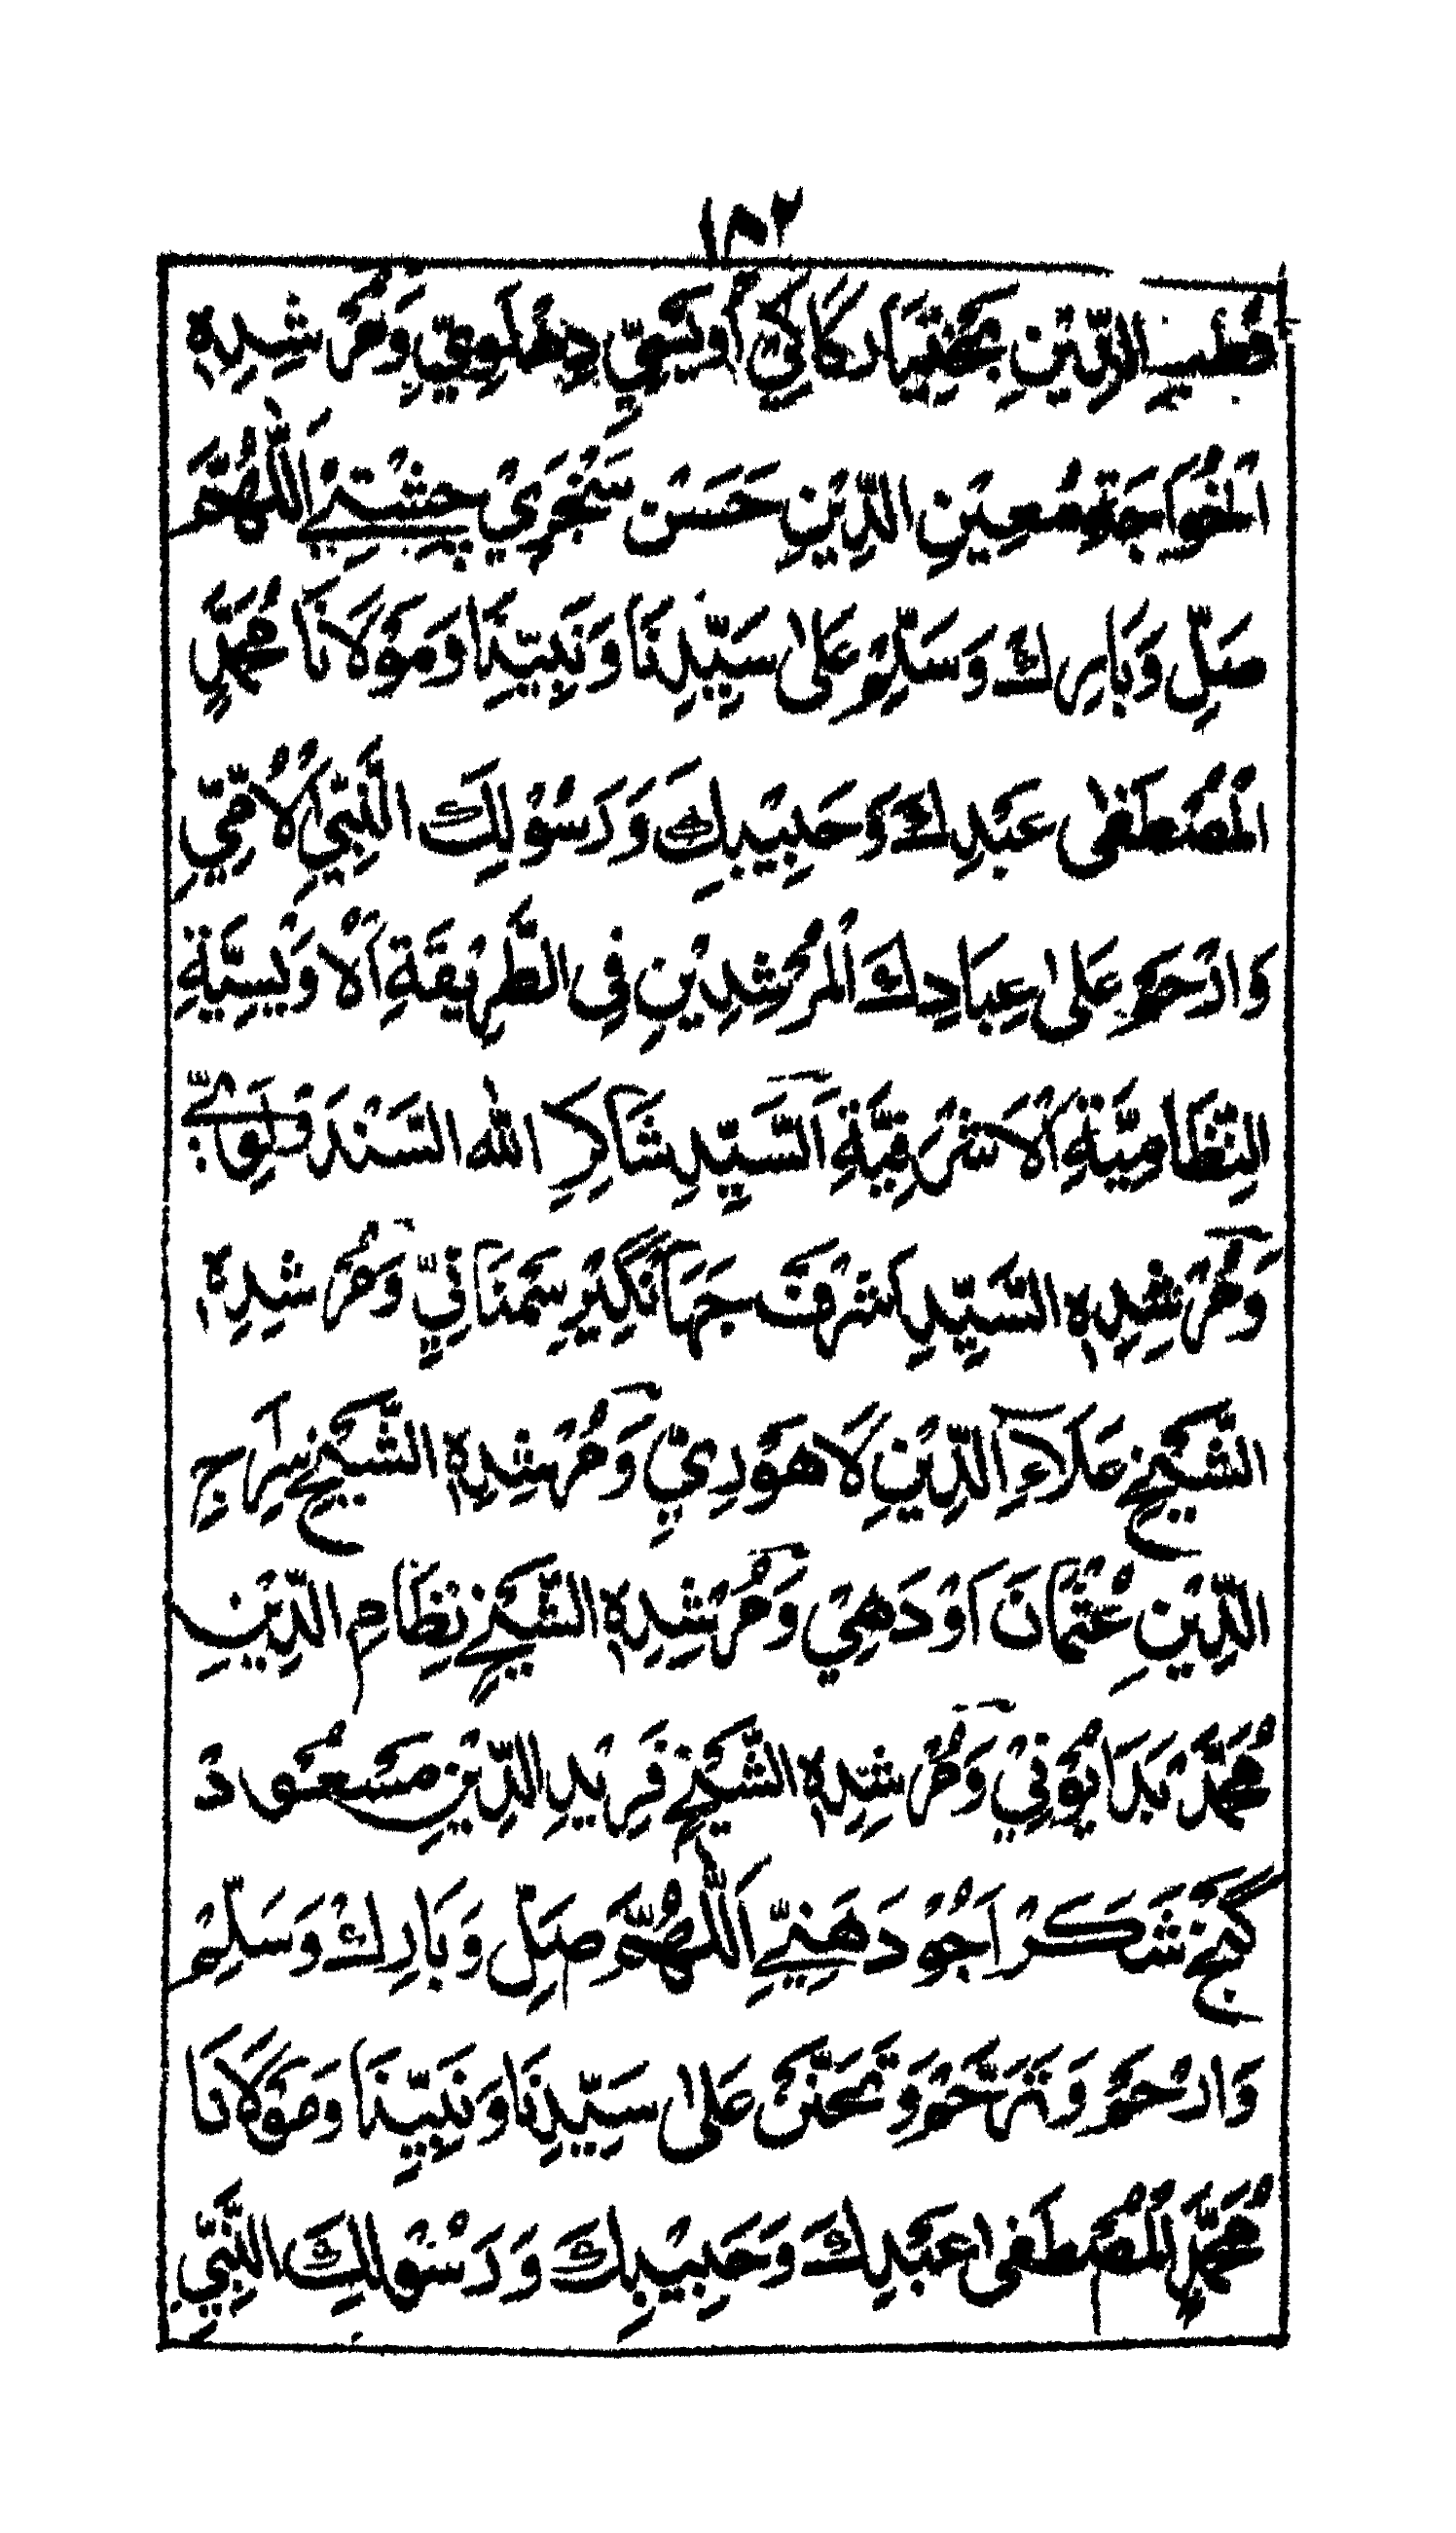 ١٨٢
قُطْبِ الدِّيْنِ بَخْتِيَارْ كَاكِيْ أُوَيْسِيّ دِهْلَوِيّ وَمُرْشِدِهِ
الْخُوَاجَةِ مُعِيْنِ الدِّيْنِ حَسَنْ سَنْجَرِيْ چِشْتِيْ اَللّٰهُمَّ
صَلِّ وَبَارِكْ وَسَلِّمْ عَلٰى سَيِّدِنَا وَنَبِيِّنَا وَمَوْلَانَا مُحَمَّدٍ
الْمُصْطَفٰى عَبْدِكَ وَحَبِيْبِكَ وَرَسُوْلِكَ النَّبِيِّ الْاُمِّيِّ
وَارْحَمْ عَلٰى عِبَادِكَ الْمُرْشِدِيْنَ فِي الطَّرِيْقَةِ الْاُوَيْسِيَّةِ
النِّظَامِيَّةِ الْاَشْرَفِيَّةِ اَلسَّيِّدِ شَاكِرِ الله السَّنْدَرْلَوِيّ
وَمُرْشِدِهِ السَّيِّدِ اَشْرَفْ جَهَانْگِيْرِ سِمْنَانِيّ وَمُرْشِدِهِ
الشَّيْخِ عَلَاءِ الدِّيْنِ لَاهَوْرِيّ وَمُرْشِدِهِ الشَّيْخِ سِرَاجِ
الدِّيْنِ عُثْمَانَ اَوْدَهِيْ وَمُرْشِدِهِ الشَّيْخِ نِظَامِ الدِّيْنِ
مُحَمَّدْ بَدَايُوْنِيْ وَمُرْشِدِهِ الشَّيْخِ فَرِيْدِ الدِّيْنِ مَسْعُوْدْ
گَنْجِ شَكَرْ اَجُوْدَهَنِيّ اَللّٰهُمَّ صَلِّ وَبَارِكْ وَسَلِّمْ
وَارْحَمْ وَتَرَحَّمْ وَتَحَنَّنْ عَلٰى سَيِّدِنَا وَنَبِيِّنَا وَمَوْلَانَا
مُحَمَّدٍ الْمُصْطَفٰى عَبْدِكَ وَحَبِيْبِكَ وَرَسُوْلِكَ النَّبِيِّ